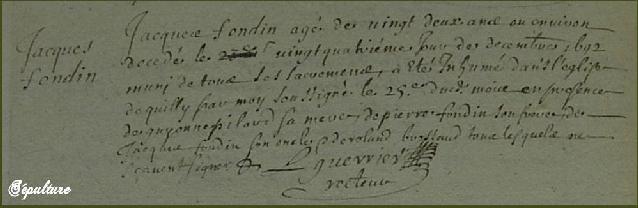 Jacques
fondin
Jacques fondin agé de vingt deux ans ou environ
decedé le vingt quatriéme jour de decembre 1692
muni de tous ses sacremens, a été Inhumé dans l'eglise
de quilly par moy soussigné le 25.e dud. mois en presence
de guyonne pilard sa mere, de pierre fondin son frere, de
Jacques fondin son oncle, de roland tous lesquels ne
scavent signer
L guerrier
recteur
Sépulture